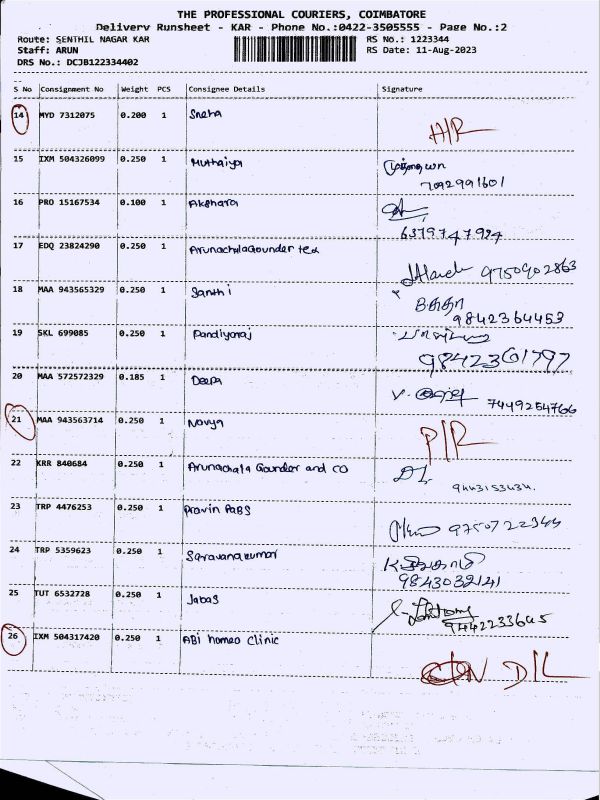 THE PROFESSIONAL COURIERS, COIMBATORE
Delivery Runsheet - KAR - Phone No.:0422-3505555 - Page No.:2
Route: SENTHIL NAGAR KAR RS No.: 1223344
Staff: ARUN RS Date: 11-Aug-2023
DRS No.: DCJB122334402
S No Consignment No Weight PCS Consignee Details Signature
14 MYD 7312075 0.200 1 Sneha H/R
15 IXM 504326099 0.250 1 Muthaiya
7092991601
16 PRO 15167534 0.100 1 Akshara
6379747924
17 EDQ 23824290 0.250 1 Arunachalagounder tex 9750902863
18 MAA 943565329 0.250 1 Santhi
9842364453
19 SKL 699085 0.250 1 Pandiyaraj
9842361797
20 MAA 572572329 0.185 1 Deepa 7449254766
21 MAA 943563714 0.250 1 Navya P/R
22 KRR 840684 0.250 1 Arunachala Gounder and CO
9443153434.
23 TRP 4476253 0.250 1 Pravin PaBS 9750722344
24 TRP 5359623 0.250 1 Saravanakumar
9843032141
25 TUT 6532728 0.250 1 Jabas
9442233645
26 IXM 504317420 0.250 1 ABi homeo Clinic D/L